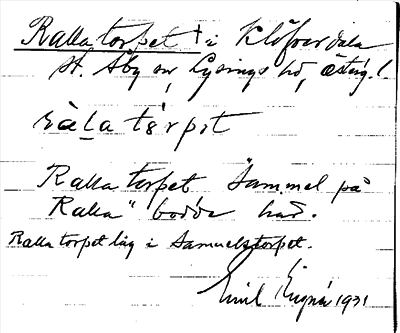 Rallatorpet † i Klöverdala
St. Åby sn, Lysings hd, Östergl.
Rallatorpet "Sammel på
Ralla" bodde här.
Rallatorpet låg i Samuelstorpet.
Emil 1931